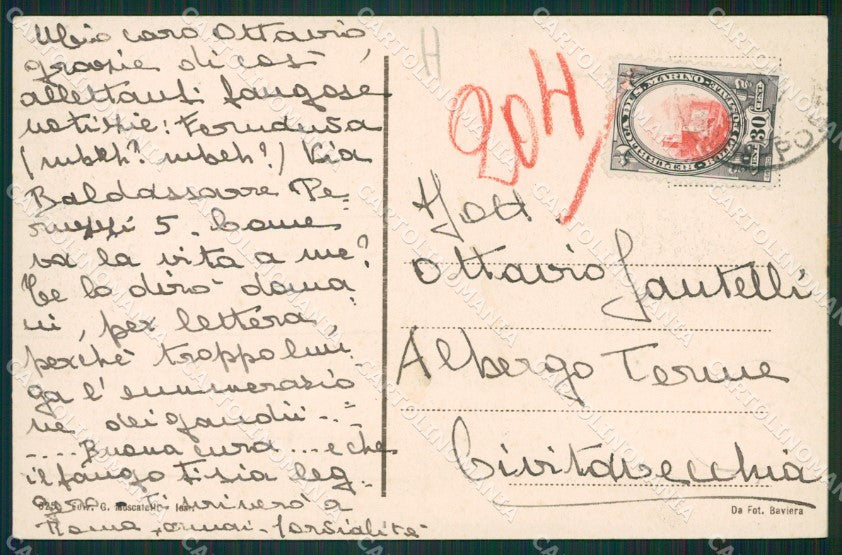 Mio caro Ottavio,
grazie di così
allettanti fangose
notizie: Feruduta
(mbeh? mbeh?) Via
Baldassarre Pe-
ruzzi 5. Come
va la vita a me?
Te lo dirò doma
ni, per lettera,
perchè troppo lun
ga l'enumerazio
ne dei gaudii...
.... Buona cura ... e che
il fango ti sia leg
gero - ti scriverò a
Roma
H
20H
REPUBBLICA DI S. MARINO
30 CENT
Ottavio Fantelli
Albergo Terme
Civitavecchia
G. Moscatelli
Da Fot. Baviera
CARTOLINOMANIA